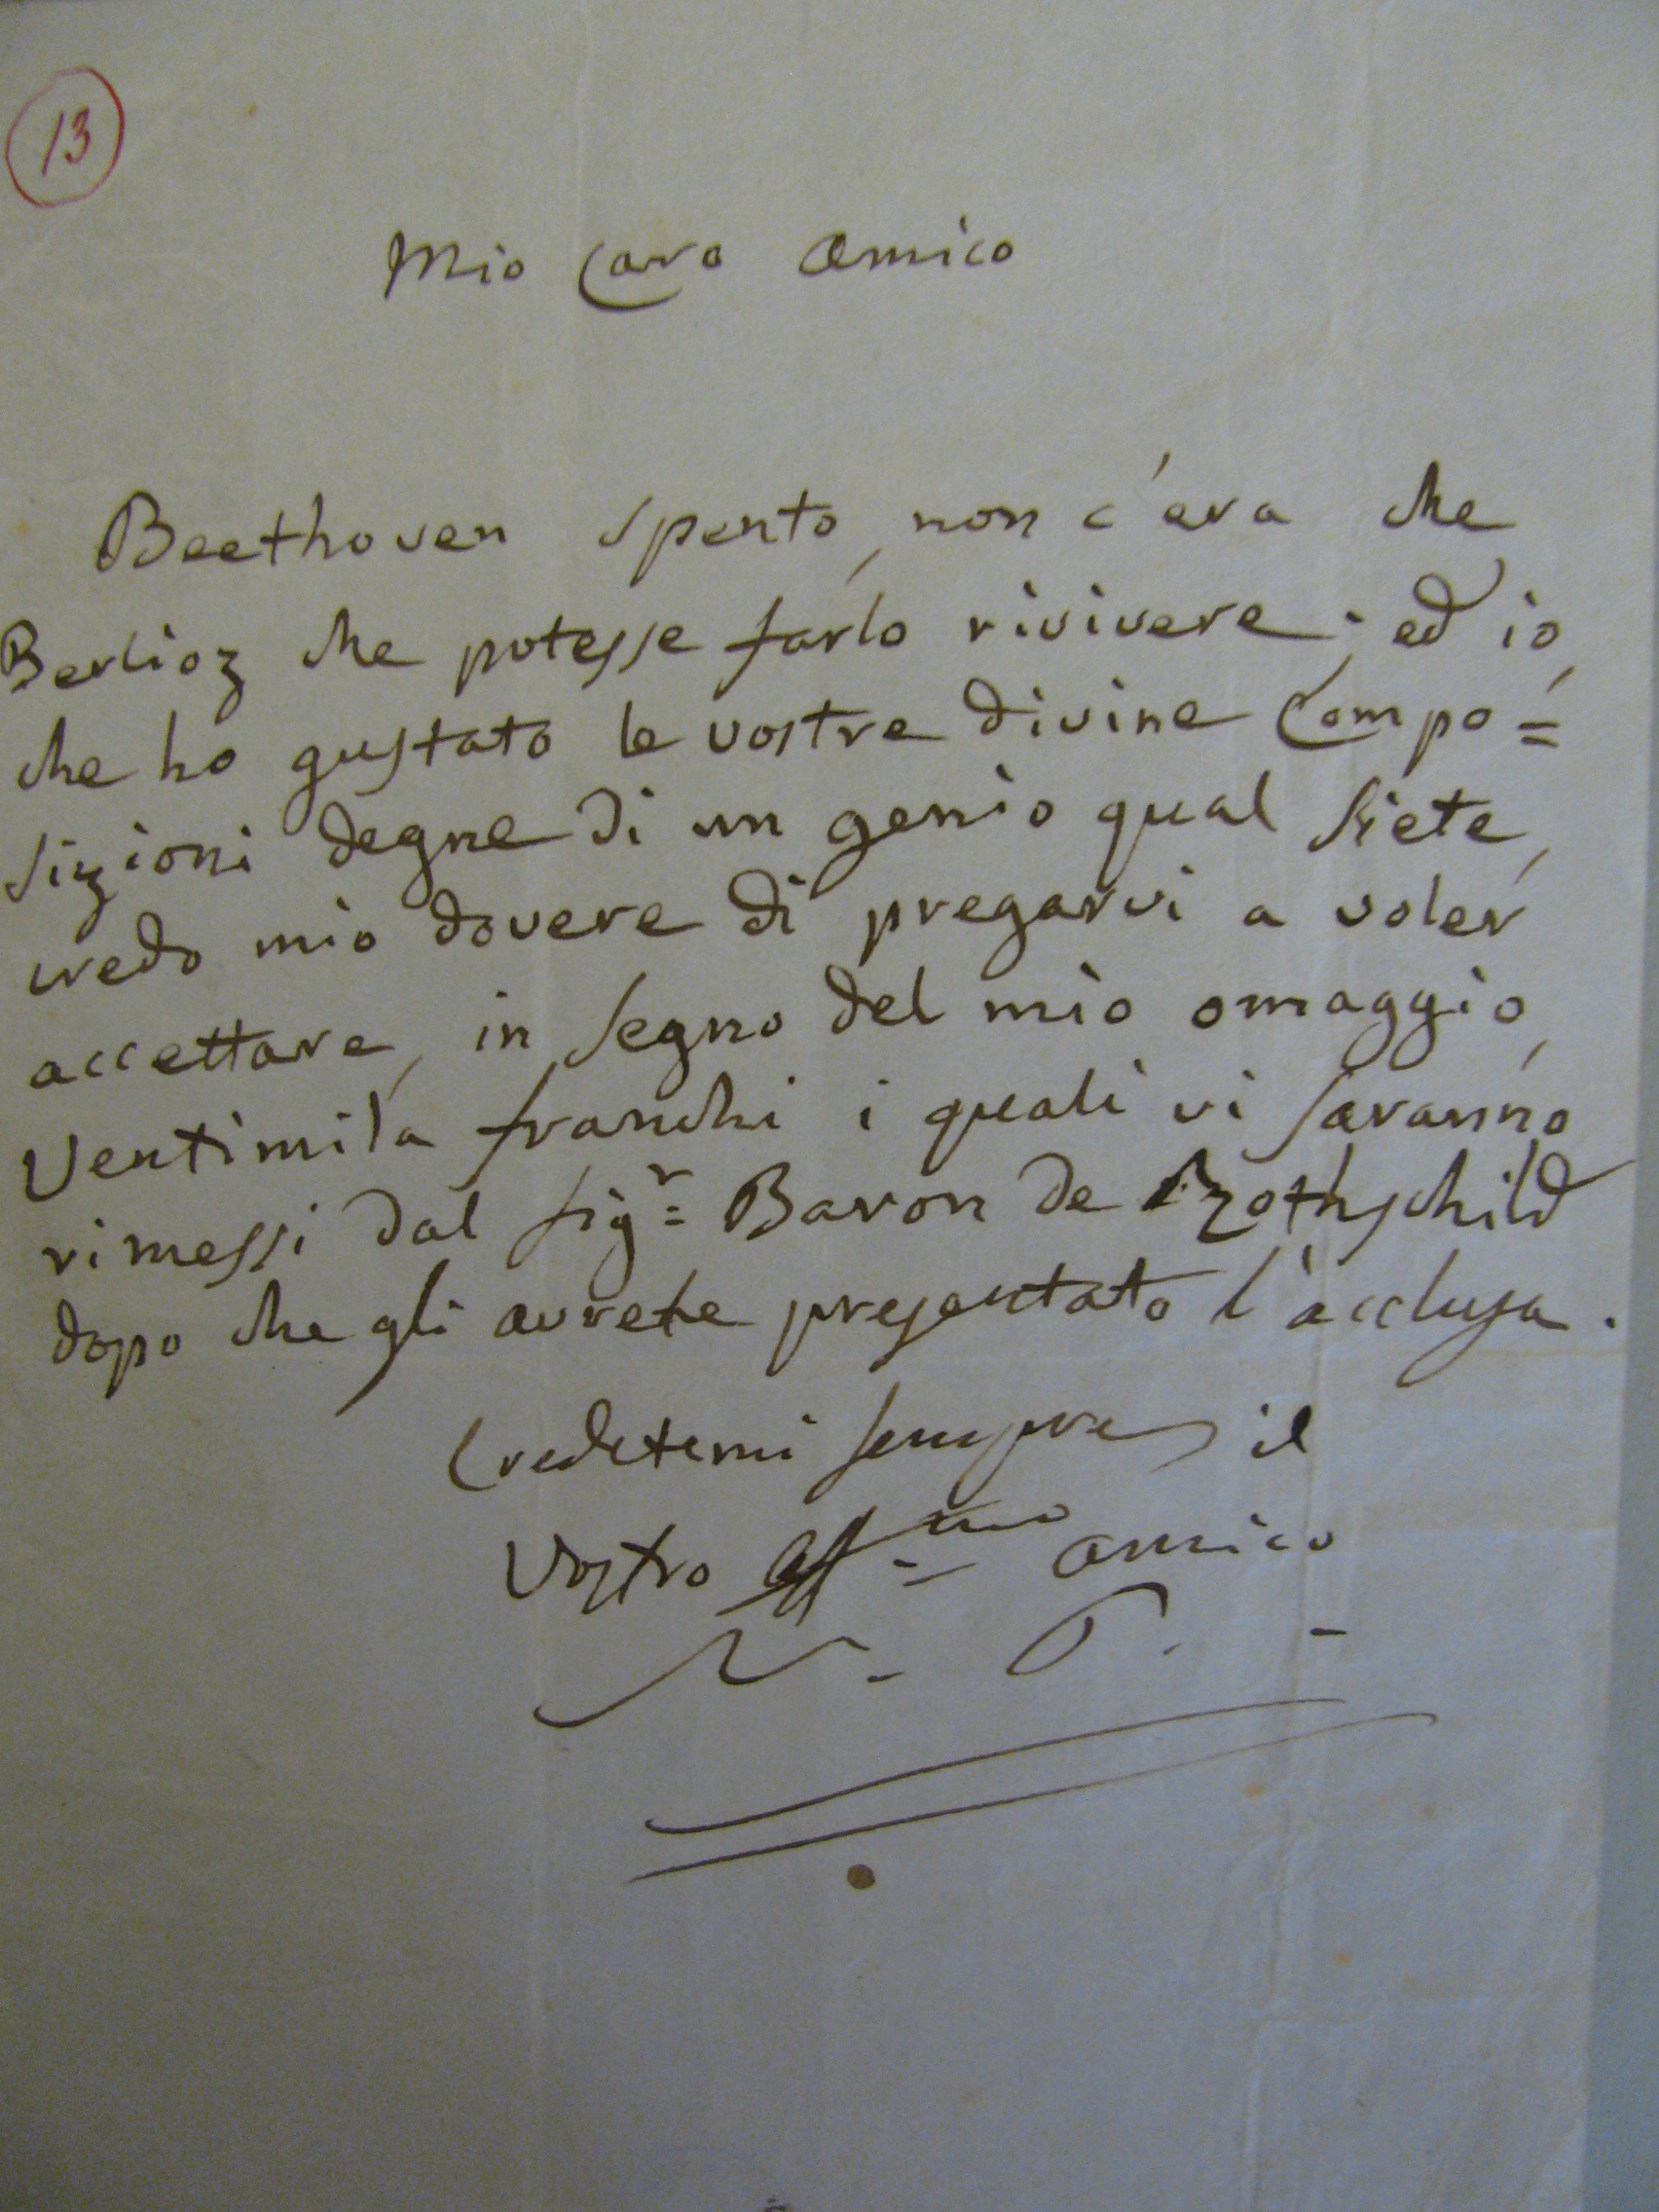 13
Mio Caro Amico
Beethoven spento, non c'era che
Berlioz che potesse farlo rivivere; ed io,
che ho gustato le vostre divine Compo=
sizioni degne di un genio qual siete,
credo mio dovere di pregarvi a voler
accettare, in segno del mio omaggio,
Ventimila franchi i quali vi saranno
rimessi dal sigr= Baron de Rothschild
dopo che gli avrete presentato l'acclusa.
Credetemi sempre il
Vostro affmo amico
N. P.